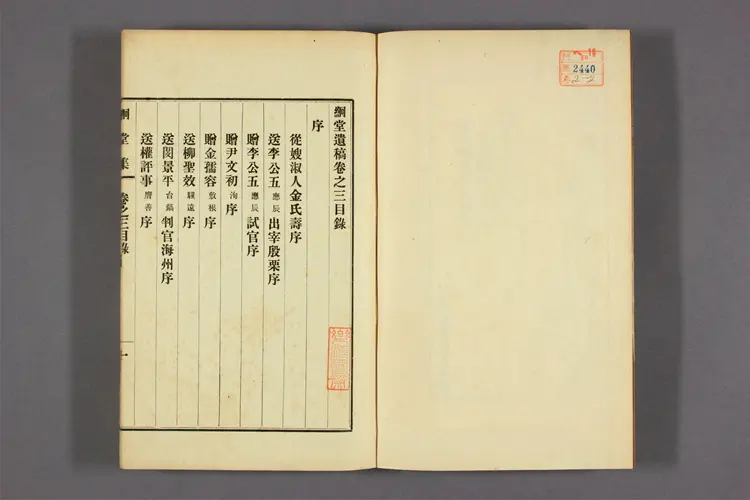 絅堂遺稿卷之三目錄
序
從嫂淑人金氏壽序
送李公五應辰出宰殷栗序
贈李公五應辰試官序
贈尹文初洵序
贈金孺容敎根序
送柳聖效驥遠序
送閔景平台鎬判官海州序
送權評事膺善序
絅堂集 卷之三目錄 一
2440
2-2